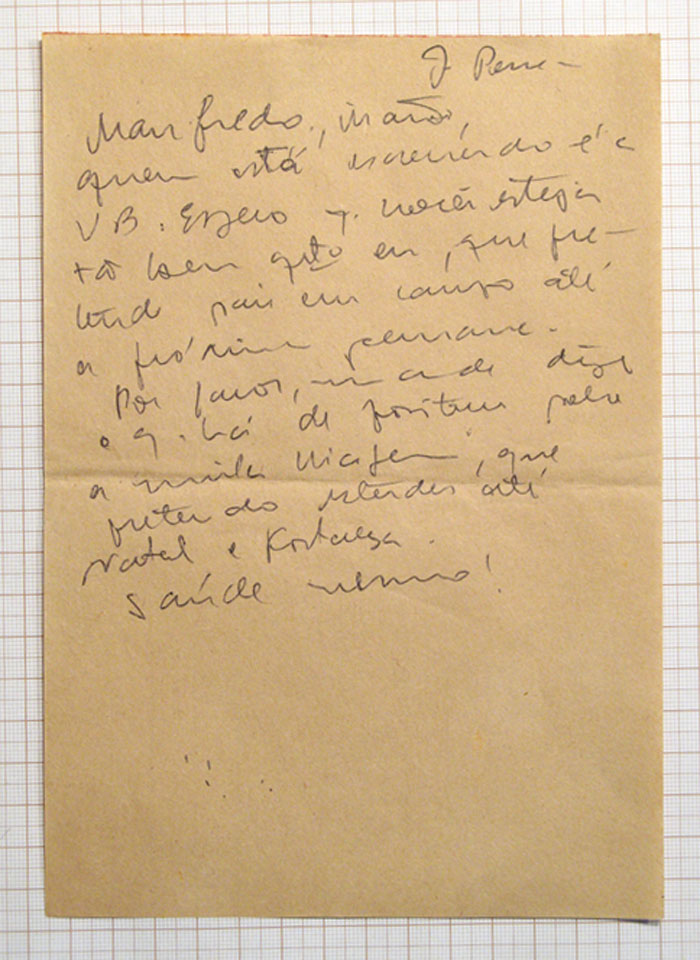 Manfredo, irmão,
quem está escrevendo é a
VB. Espero q. vocês esteja
tão bem qto eu, que pre-
tendo em campo até
a próxima semana.
Por favor, mande dizer
o q. há de positivo sobre
a minha viagem, que
pretendo estender até
Natal e Fortaleza.
Saúde mermo!